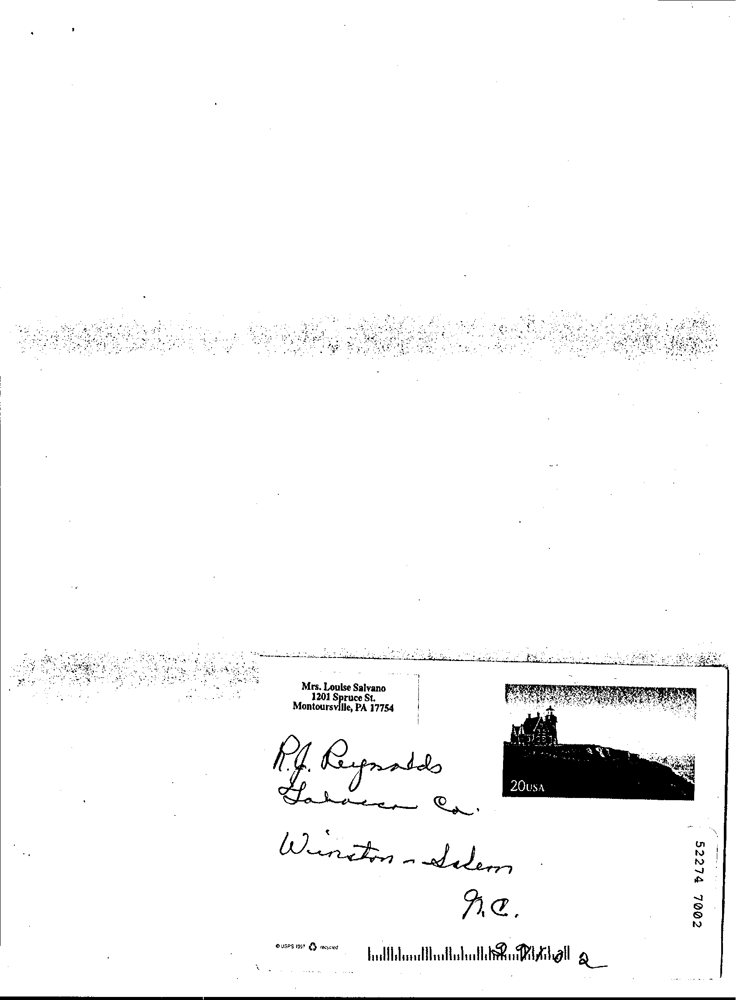 Mrs. Louise Salvano
1201 Spruce St.
Montoursville, PA 17754
20USA
R.J. Reynolds
Tobacco Co.
Winston-Salem
N.C.
52274 7002
© USPS 1997 recycled